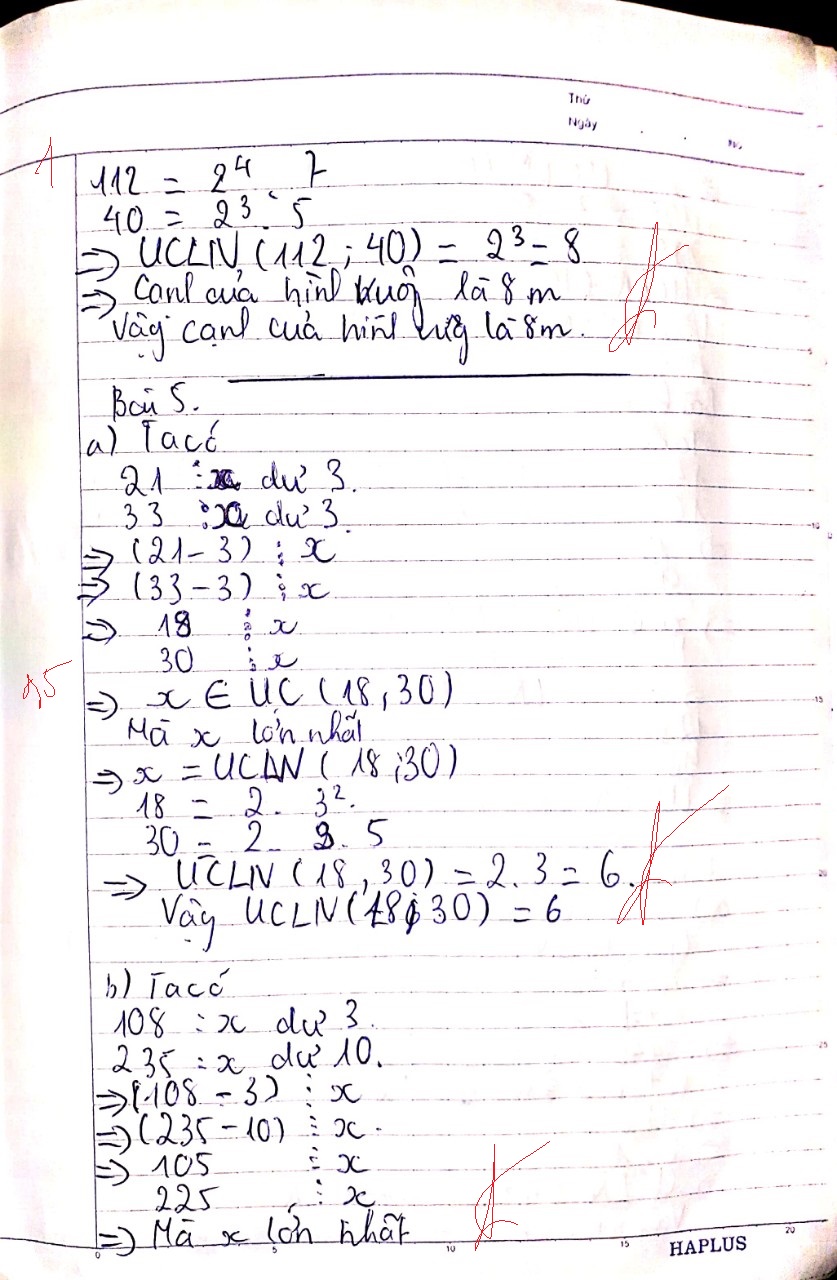 Thứ
Ngày
1
112 = 2⁴ . 7
40 = 2³ . 5
=> UCLN (112 ; 40) = 2³ = 8
=> Cạnh của hình vuông là 8 m
Vậy cạnh của hình vuông là 8m.
Bài 5.
a) Ta có
21 : x dư 3.
33 : x dư 3.
=> (21 - 3) ⋮ x
=> (33 - 3) ⋮ x
=> 18 ⋮ x
30 ⋮ x
1,5
=> x ∈ UC (18, 30)
Mà x lớn nhất
=> x = UCLN (18 ; 30)
18 = 2 . 3².
30 = 2 . 3 . 5
=> UCLN (18, 30) = 2 . 3 = 6.
Vậy UCLN (18 ; 30) = 6
b) Ta có
108 : x dư 3.
235 : x dư 10.
=> (108 - 3) ⋮ x
=> (235 - 10) ⋮ x.
=> 105 ⋮ x
225 ⋮ x
=> Mà x lớn nhất
0 5 10 15 20
HAPLUS